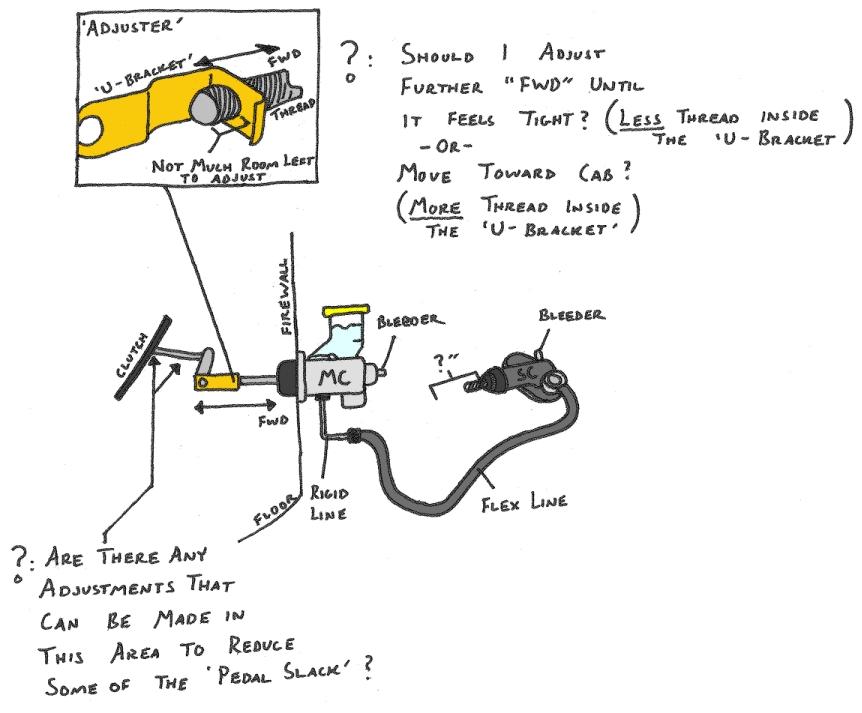 'ADJUSTER'
'U-BRACKET'
FWD
THREAD
NOT MUCH ROOM LEFT
TO ADJUST
?: SHOULD I ADJUST
FURTHER "FWD" UNTIL
IT FEELS TIGHT? (LESS THREAD INSIDE
THE 'U-BRACKET)
-OR-
MOVE TOWARD CAB?
(MORE THREAD INSIDE
THE 'U-BRACKET')
FIREWALL
BLEEDER
BLEEDER
CLUTCH
MC
?"
SC
FWD
FLOOR
RIGID
LINE
FLEX LINE
?: ARE THERE ANY
ADJUSTMENTS THAT
CAN BE MADE IN
THIS AREA TO REDUCE
SOME OF THE 'PEDAL SLACK'?